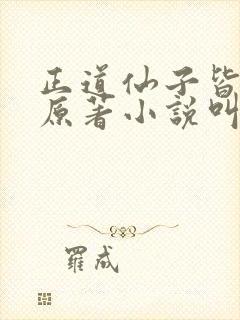 正道仙子皆
原著小說叫
羅成